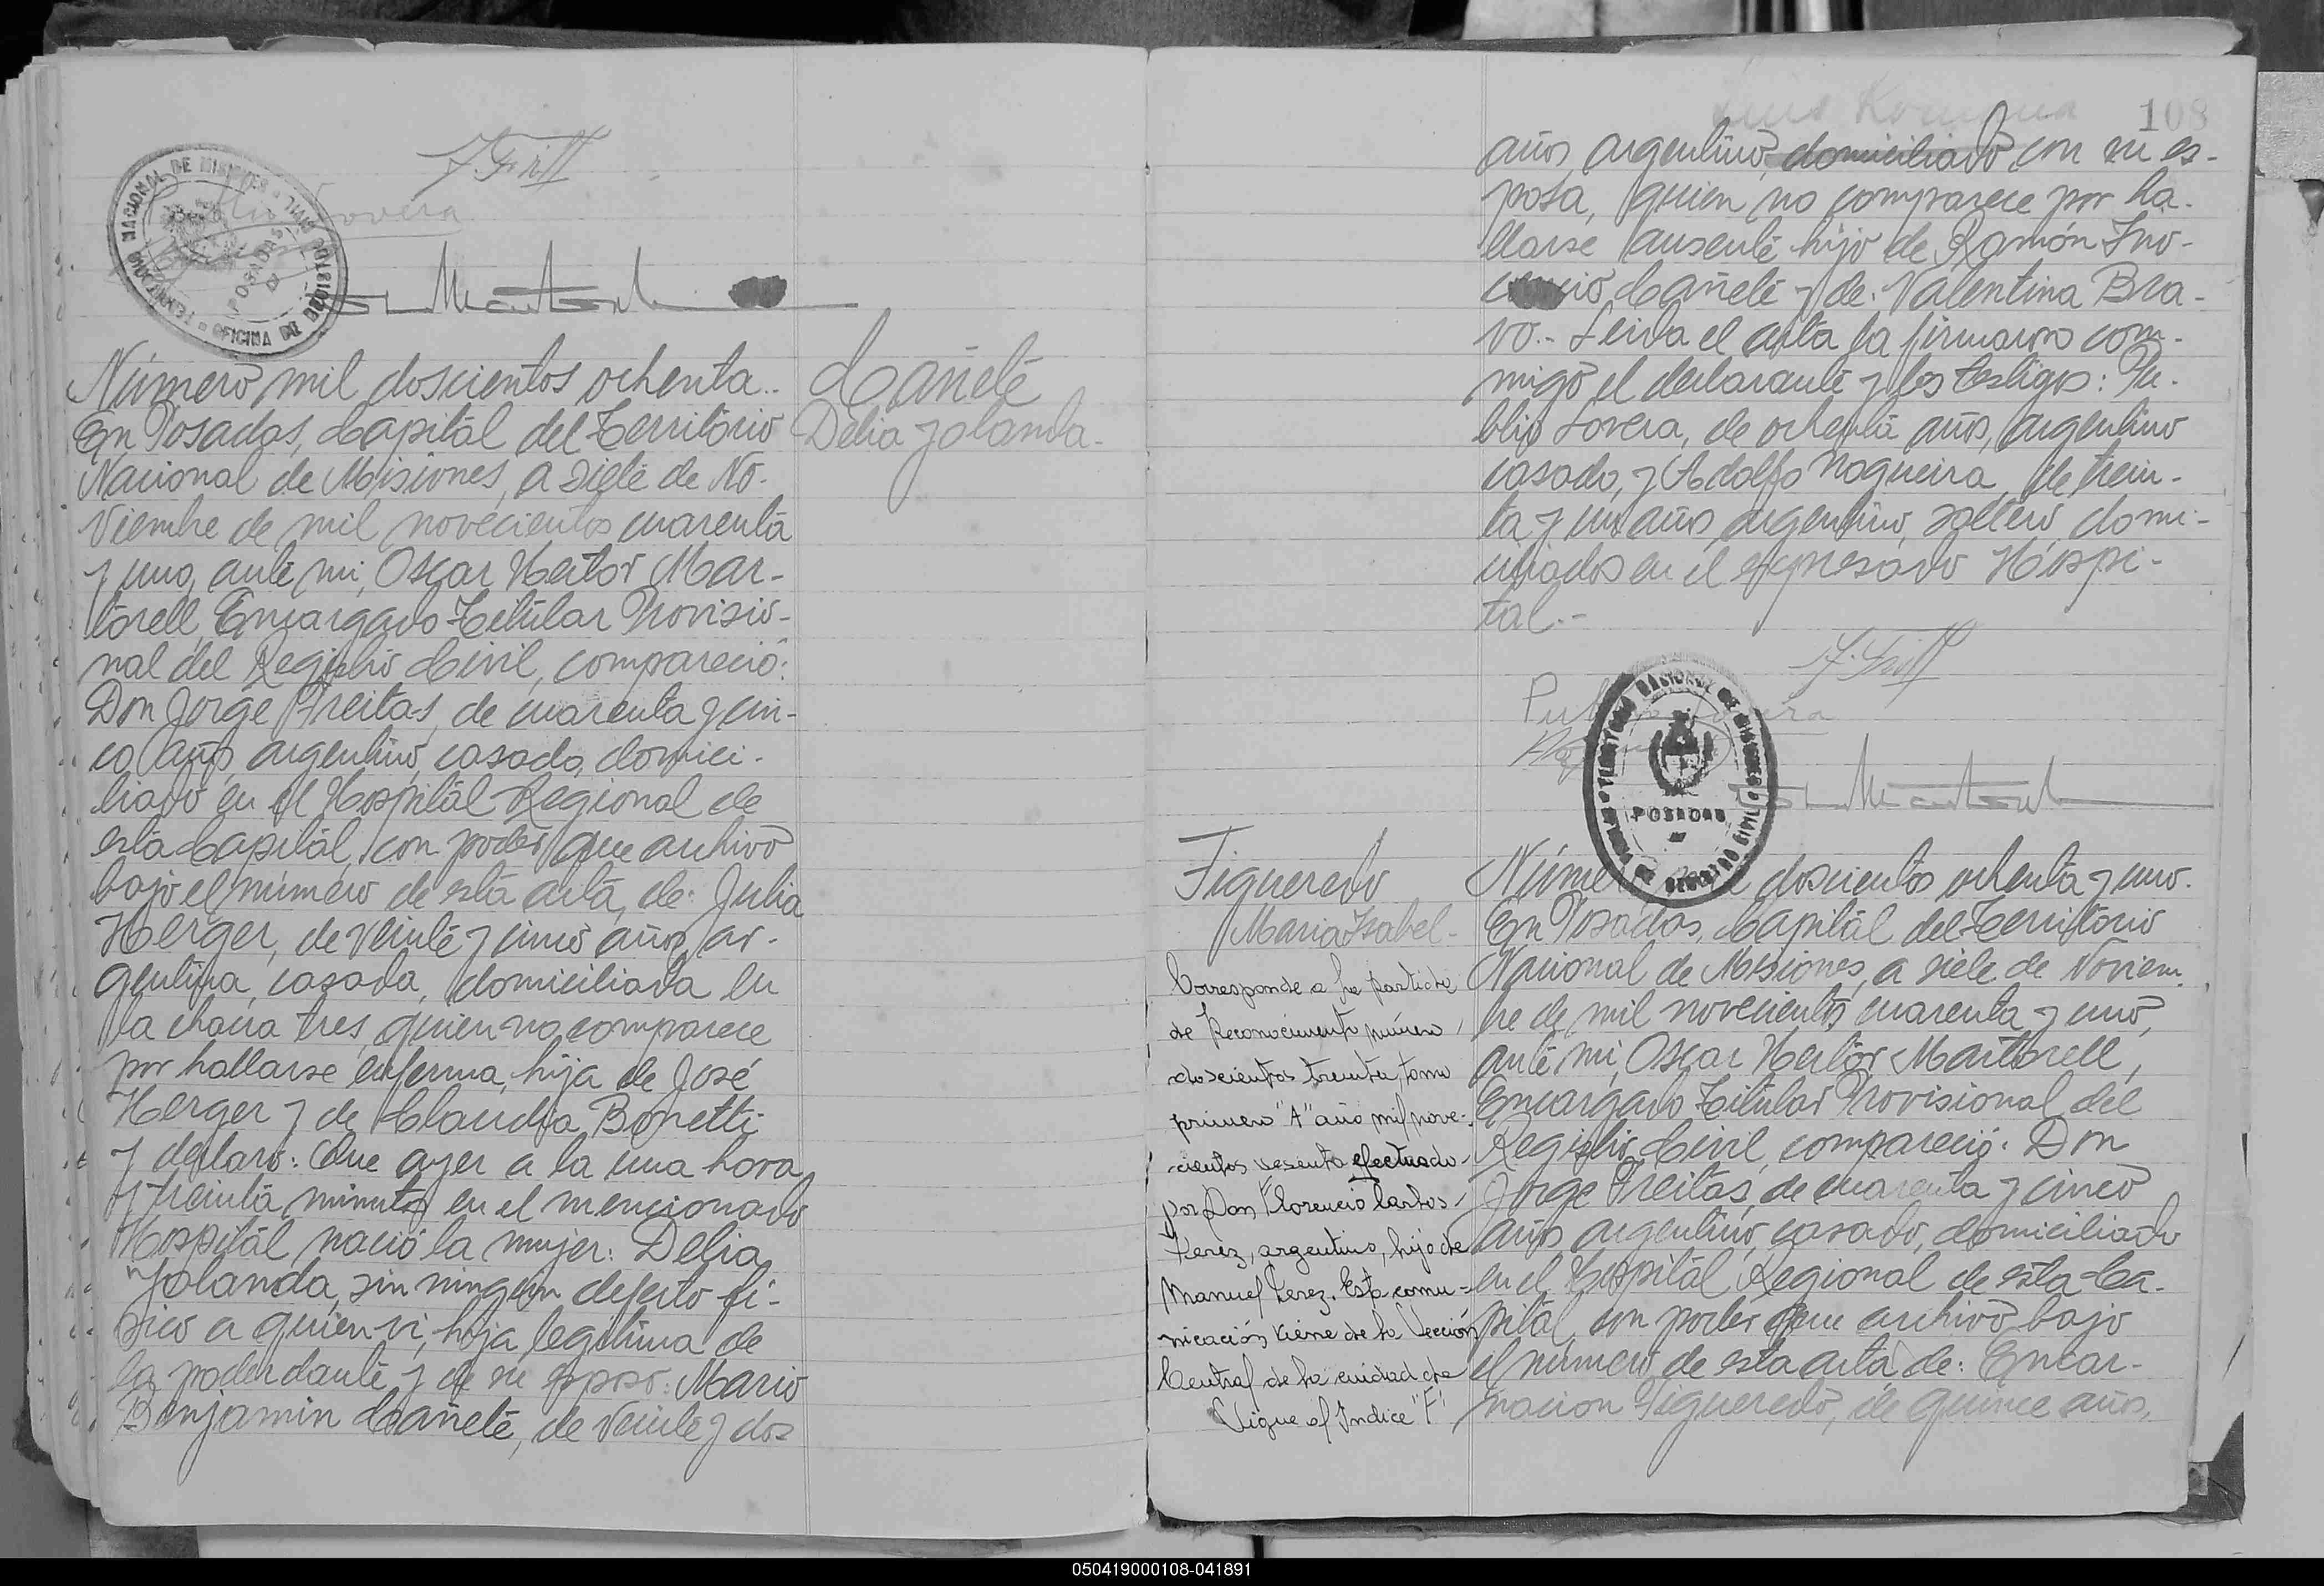 J. Fritt
TERRITORIO NACIONAL DE MISIONES
OFICINA DE REGISTRO CIVIL
POSADAS
Lovera
Número mil doscientos ochenta..
En Posadas, Capitál del Território
Nacional de Misiones, a siete de No-
viembre de mil novecientos cuarenta
y uno, ante mi, Oscar Hector Mar-
torell, Encargado Titular Provisio-
nal del Registro Civil, compareció:
Don Jorge Freitas, de cuarenta y cin-
co años, argentino, casado, domici-
liado en el Hospitál Regional de
esta Capitál, con poder que archivo
bajo el número de esta acta, de: Julia
Herger, de veinte y cinco años, ar-
gentina, casada, domiciliada en
la chacra tres, quien no comparece
por hallarse enferma, hija de José
Herger y de Claudia Bonetti
y declaró: Que ayer a la una hora
y treinta minutos en el mencionado
Hospitál, nació la mujer: Delia
Yolanda, sin ningun defecto fi-
sico a quien vi, hija legitima de
la poderdante y de su esposo: Mario
Benjamin Cañete, de veinte y dos
Cañete
Delia Yolanda.-
108
años, argentino, domiciliado con su es-
posa, quien no comparece por ha-
llarse ausente hijo de Ramón Ino-
cencio Cañete y de: Valentina Bra-
vo.- Leida el acta la firmaron con-
migo el declarante y los testigos: Pu-
blio Lovera, de ochenta años, argentino
casado, y Adolfo Nogueira, de trein-
ta y un años, argentino, soltero, domi-
ciliados en el expresado Hospi-
tal.-
J. Fritt
Publio Lovera
TERRITORIO NACIONAL DE MISIONES
REGISTRO CIVIL
POSADAS
Figueredo
Maria Isabel.-
Corresponde a la partida
de Reconocimiento número
doscientos treinta, tomo
primero "A" año mil nove-
cientos sesenta efectuado
por Don Florencio Carlos
Perez, argentino, hijo de
Manuel Perez. Esta comu-
nicación viene de la Sección
Central de la ciudad de
Sigue al Indice "F"
Número mil doscientos ochenta y uno.
En Posadas, Capitál del Território
Nacional de Misiones, a siete de Noviem-
bre de mil novecientos cuarenta y uno,
ante mi, Oscar Hector Martorell,
Encargado Titular Provisional del
Registro Civil, compareció: Don
Jorge Freitas, de cuarenta y cinco
años, argentino, casado, domiciliado
en el Hospitál Regional de esta Ca-
pitál, con poder que archivo bajo
el número de esta acta, de: Encar-
nacion Figueredo, de quince años,
050419000108-041891